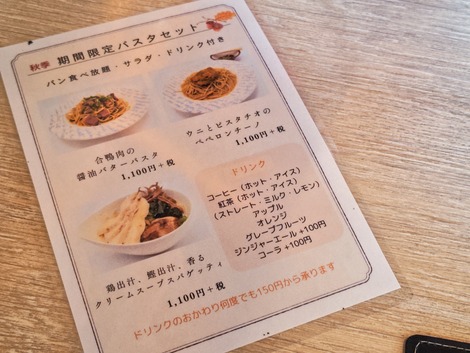 秋季 期間限定パスタセット
パン食べ放題・サラダ・ドリンク付き
合鴨肉の
醤油バターパスタ
1,100円+税
ウニとピスタチオの
ペペロンチーノ
1,100円+税
鶏出汁、鰹出汁、香る
クリームスープスパゲッティ
1,100円+税
ドリンク
コーヒー(ホット・アイス)
紅茶(ホット・アイス)
(ストレート・ミルク・レモン)
アップル
オレンジ
グレープフルーツ
ジンジャーエール +100円
コーラ +100円
ドリンクのおかわり何度でも150円から承ります